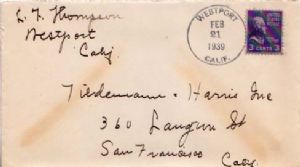 L. T. Thompson
Westport
Calif
WESTPORT
FEB
21
1939
CALIF.
3 CENTS 3
Tiedemann - Harris Inc
360 Langton St
San Francisco
Calif